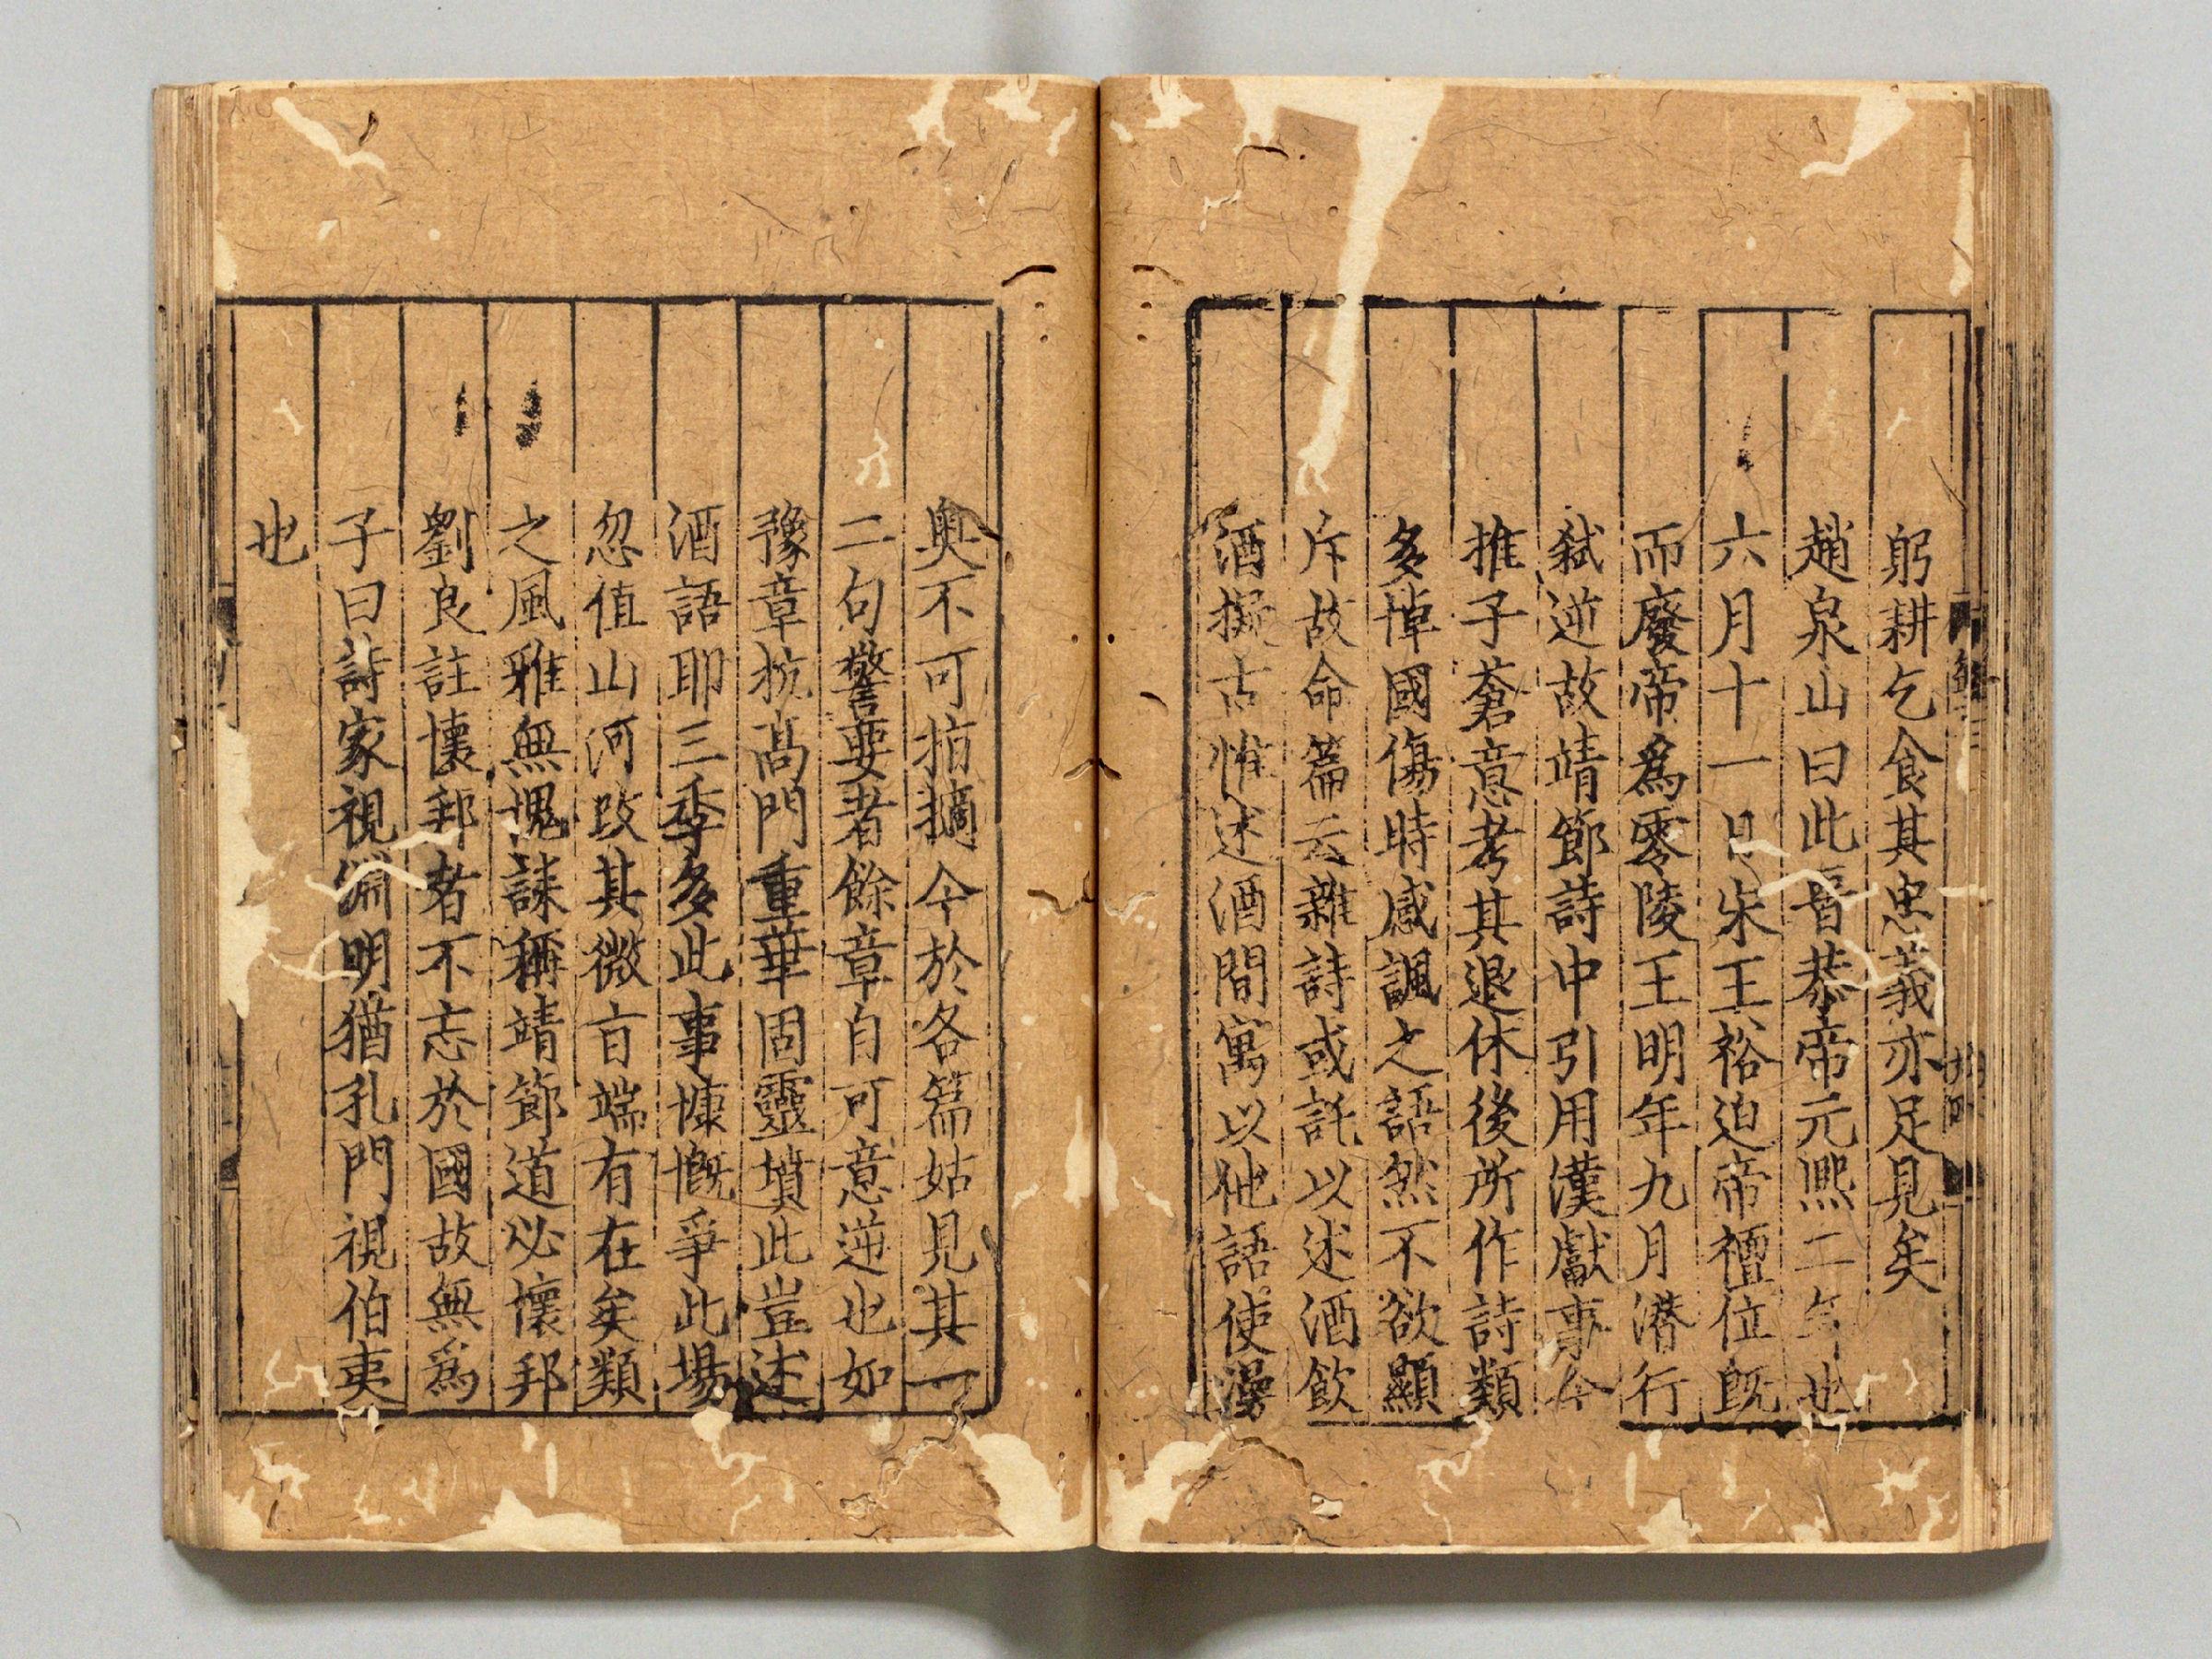 躬耕乞食其忠義亦足見矣
趙泉山曰此晋恭帝元熙二年也
六月十一日宋王裕迫帝禮位既
而廢帝爲零陵王明年九月潜行
弑逆故靖節詩中引用漢獻事今
推子蒼意考其退休後所作詩類
多悼國傷時感諷之語然不欲顯
斥故命篇云雜詩或託以述酒飲
酒擬古惟述酒間寓以他語使漫
奥不可指摘今於各篇姑見其一
二句警要者餘章自可意逆也如
豫章抗高門重華固靈墳此豈述
酒語耶三季多此事慷慨爭此場
忽值山河改其微旨端有在矣類
之風雅無愧誄稱靖節道必懷邦
劉良註懷邦者不忘於國故無爲
子曰詩家視淵明猶孔門視伯夷
也